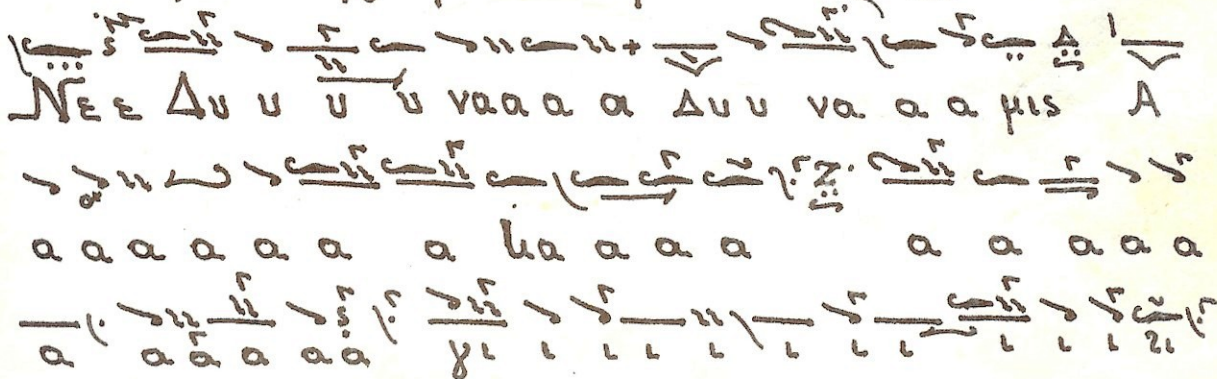 Νε ε Δυ υ υ υ ναα α α α Δυ υ να α α μις Α
α α α α α α α χα α α α α α α α α
α α α α α α γι ι ι ι ι ι ι ι ι ι ι